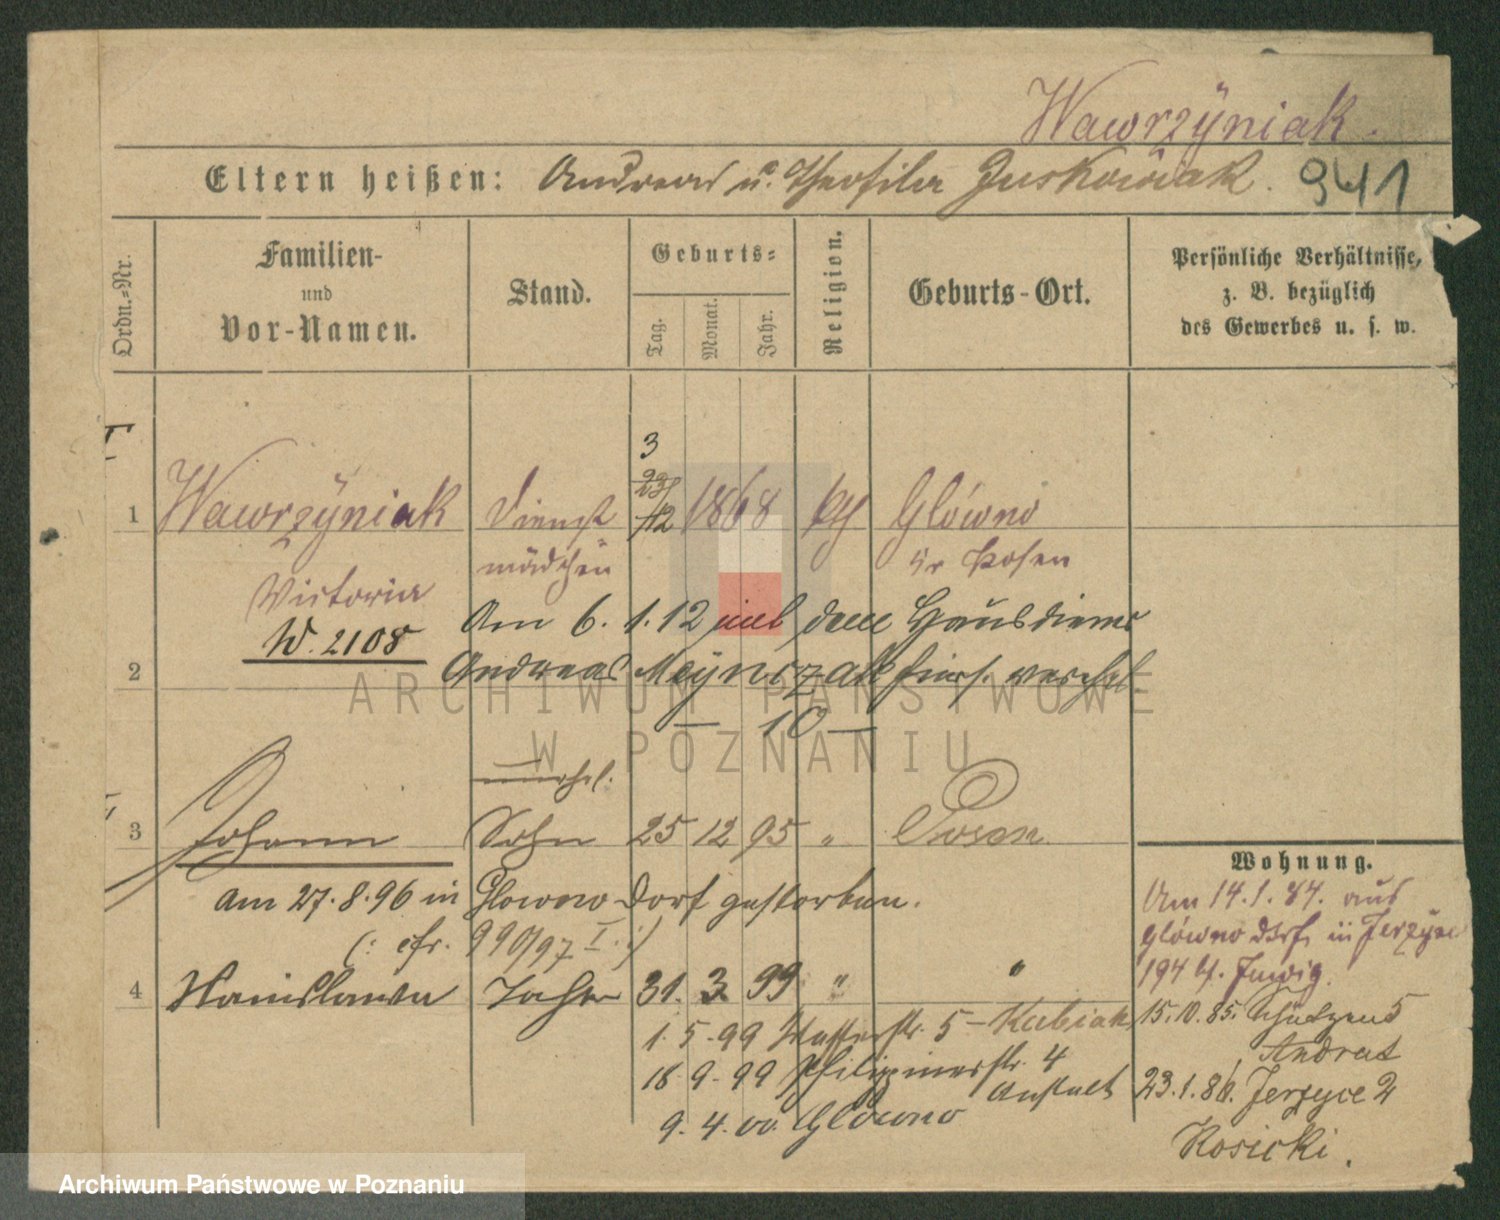 Wawrzÿniak.
Eltern heißen: Andreas u. Theofila Juskowiak. 941
Ordn.-Nr.
Familien- und Vor-Namen.
Stand.
Geburts-
Tag. Monat. Jahr.
Religion.
Geburts-Ort.
Persönliche Verhältnisse, z. B. bezüglich des Gewerbes u. s. w.
3
1 Wawrzÿniak Dienst 23/12 1868 kth Główno
mädchen Kr Posen
Victoria
W. 2108
Am 6. 1. 12 mit dem Hausdiener
2 Andreas verehel
— 10 —
unehel.
3 Johann Sohn 25 12 95 " Posen
am 27. 8. 96 in Glowno Dorf gestorben.
(: cfr. 990/97 I. :)
4 Stanislawa Tochter 31. 3. 99 " "
1. 5. 99 Wasserstr. 5 – Kubiak
18. 9. 99 Philippinerstr. 4
Anstalt
9. 4. 00. Główno
Wohnung.
Am 14. 1. 84. aus
Główno Dorf in Jerzyce
194 b.
15. 10. 85. Schützenst 5
Andrat
23. 1. 86. Jerzyce 2
Kosicki.
ARCHIWUM PAŃSTWOWE
W POZNANIU
Archiwum Państwowe w Poznaniu